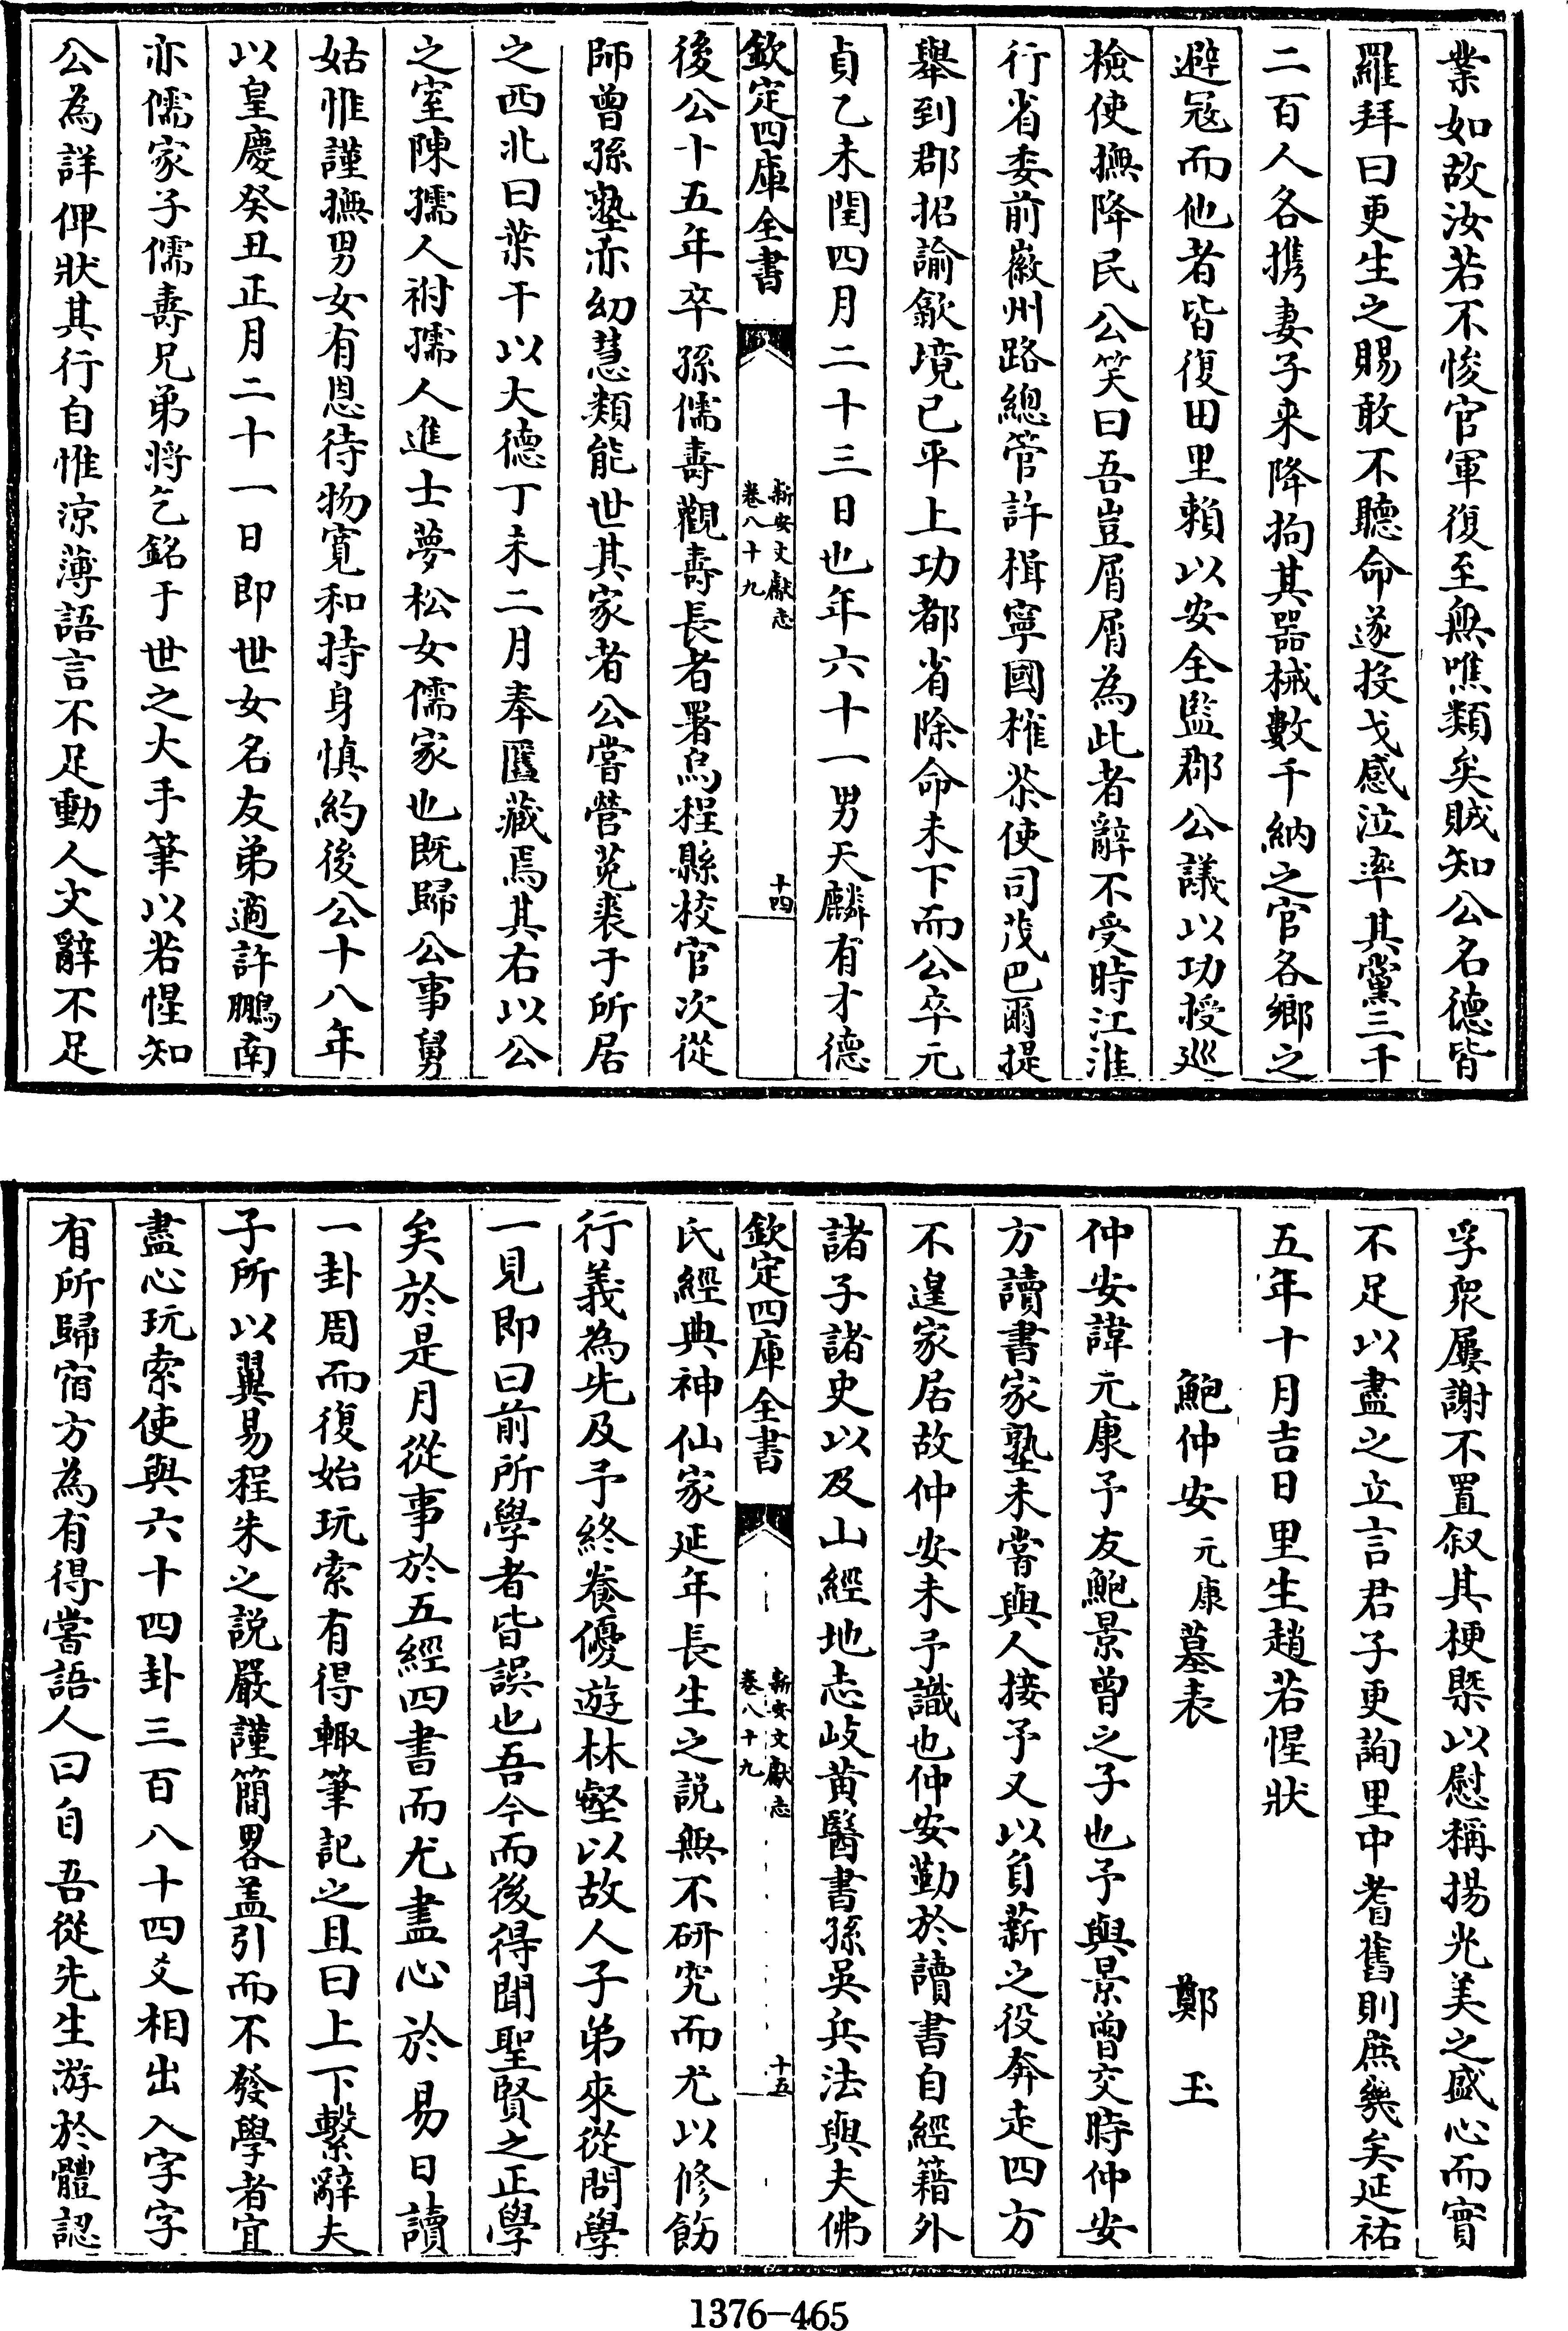 業如故汝若不悛官軍復至無噍類矣賊知公名德皆
羅拜曰更生之賜敢不聽命遂投戈感泣率其黨三千
二百人各攜妻子来降拘其器械數千納之官各鄉之
避冦而他者皆復田里賴以安全監郡公議以功授巡
檢使撫降民公笑曰吾豈屑屑為此者辭不受時江淮
行省委前徽州路總管許楫寧國榷茶使司茂巴爾提
舉到郡招諭歙境已平上功都省除命未下而公卒元
貞乙未閏四月二十三日也年六十一男天麟有才德
欽定四庫全書
新安文獻志
卷八十九
十四
後公十五年卒孫儒壽觀壽長者署烏程縣校官次從
師曾孫塾亦幼慧類能世其家者公嘗營菟裘于所居
之西北曰葉干以大德丁未二月奉匶藏焉其右以公
之室陳孺人祔孺人進士夢松女儒家也既歸公事舅
姑惟謹撫男女有恩待物寬和持身慎約後公十八年
以皇慶癸丑正月二十一日即世女名友弟適許鵬南
亦儒家子儒壽兄弟將乞銘于世之大手筆以若惺知
公為詳俾狀其行自惟涼薄語言不足動人文辭不足
孚衆屢謝不置叙其梗槩以慰稱揚光美之盛心而實
不足以盡之立言君子更詢里中耆舊則庶幾矣延祐
五年十月吉日里生趙若惺狀
鮑仲安元康墓表 鄭玉
仲安諱元康予友鮑景曾之子也予與景曾交時仲安
方讀書家塾未嘗與人接予又以負薪之役奔走四方
不遑家居故仲安未予識也仲安勤於讀書自經籍外
諸子諸史以及山經地志岐黄醫書孫吳兵法與夫佛
欽定四庫全書
新安文獻志
卷八十九
十五
氏經典神仙家延年長生之説無不研究而尤以修飭
行義為先及予終養優遊林壑以故人子弟來從問學
一見即曰前所學者皆誤也吾今而後得聞聖賢之正學
矣於是月從事於五經四書而尤盡心於易日讀
一卦周而復始玩索有得輙筆記之且曰上下繫辭夫
子所以翼易程朱之説嚴謹簡畧盖引而不發學者宜
盡心玩索使與六十四卦三百八十四爻相出入字字
有所歸宿方為有得嘗語人曰自吾從先生游於體認
1376-465